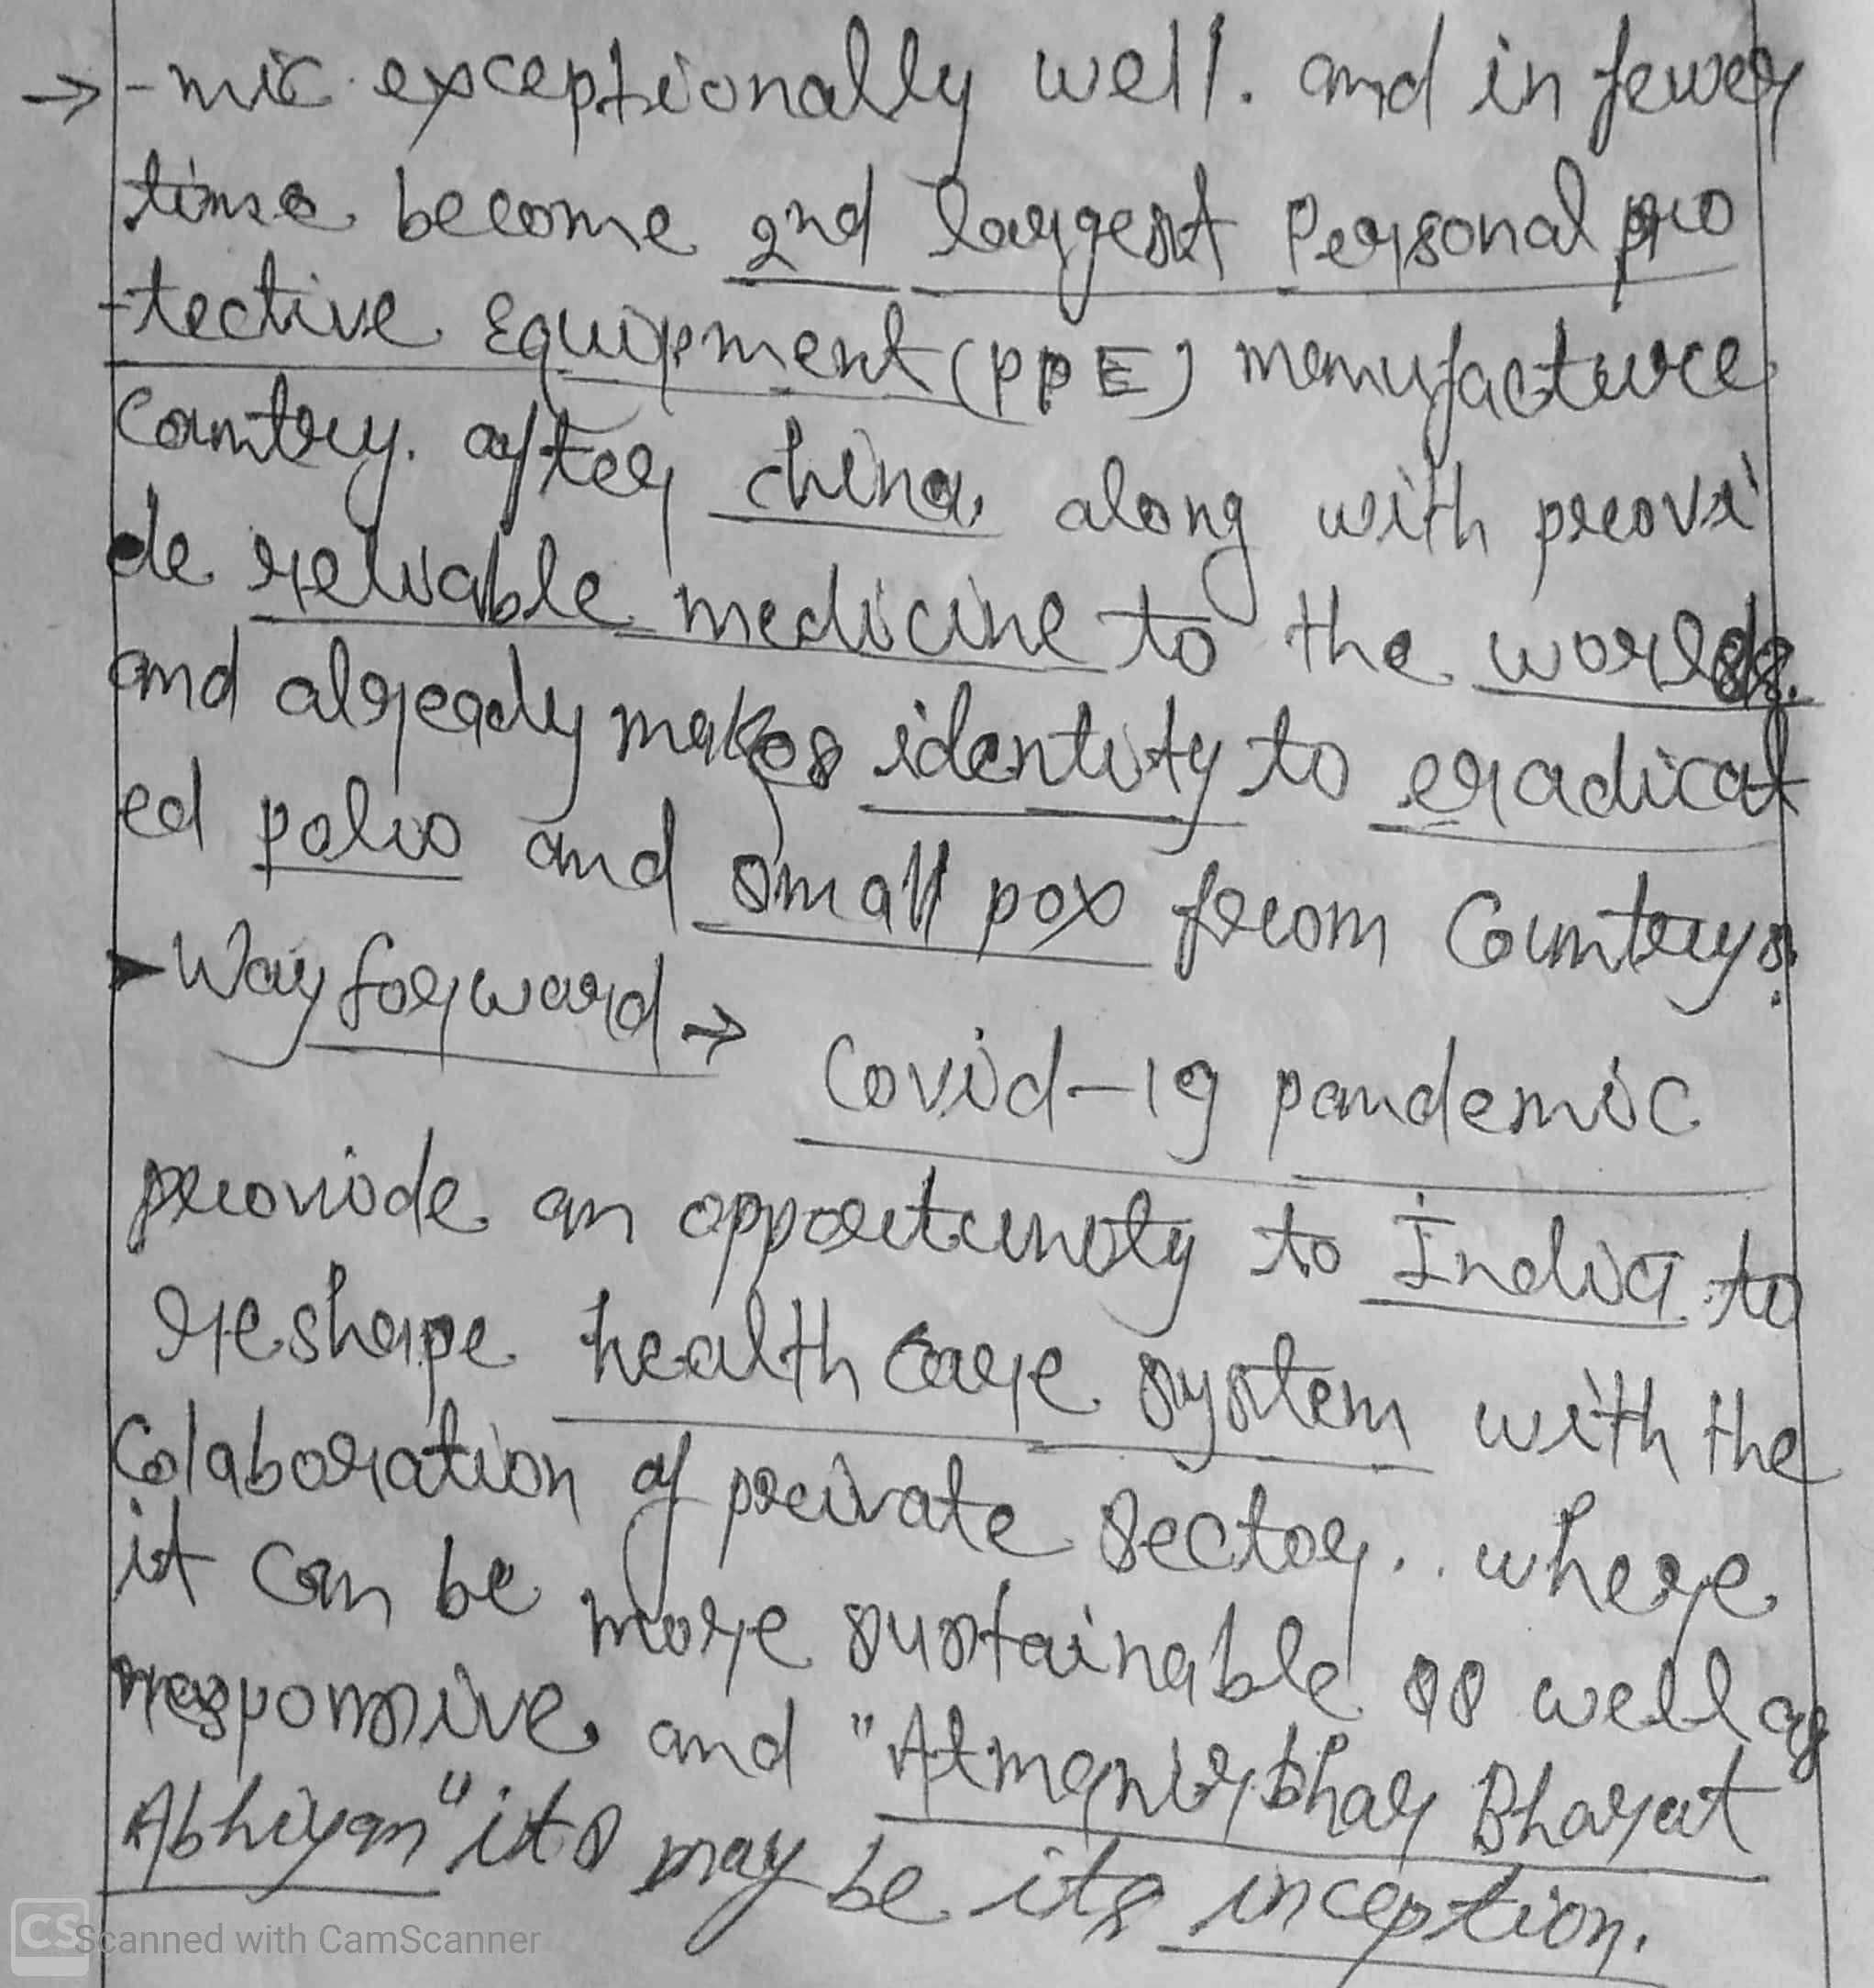 → -mic exceptionally well. and in fewer
time become 2nd largest Personal pro
-tective Equipment (PPE) manufacture
Country. after china along with provi
de reliable medicine to the world.
and already makes identity to eradicat
ed polio and small pox from Countrys.
➤ Way forward →
Covid-19 pandemic
provide an opportunity to India to
reshape health care system with the
Colaboration of private sector.. where
it can be more sustainable as well as
responsive and "Atmanirbhar Bharat
Abhiyan" its may be its inception.
CS Scanned with CamScanner